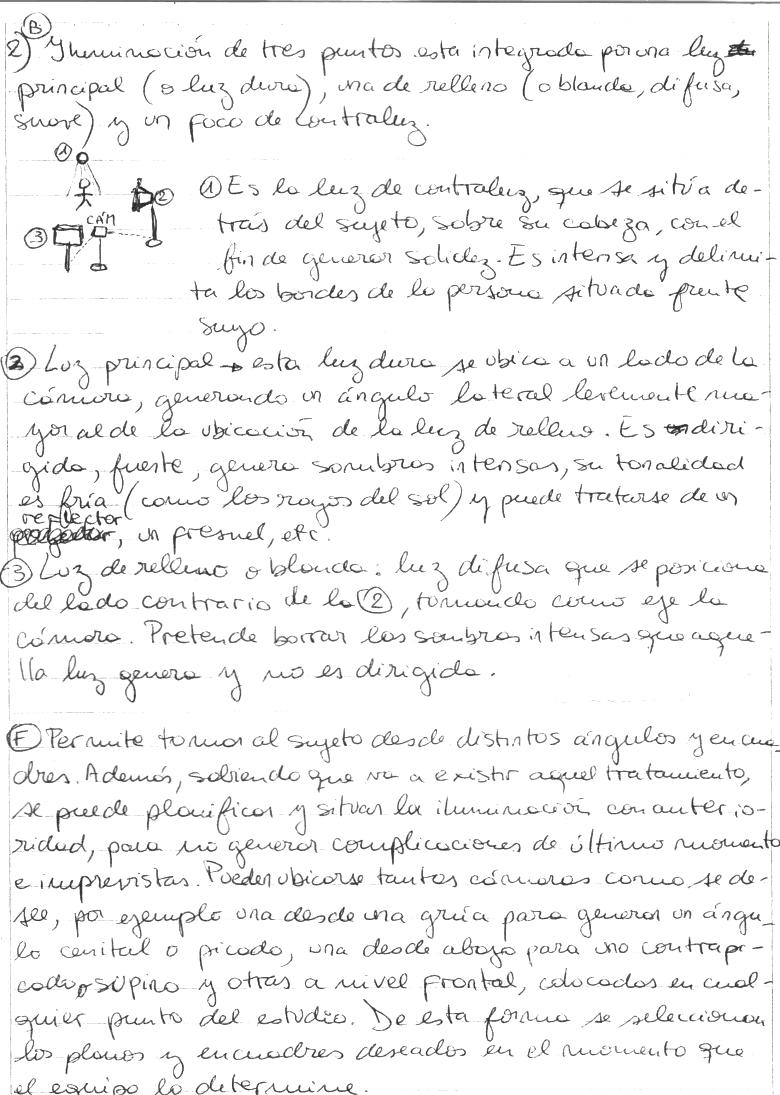 B
2) Iluminación de tres puntos esta integrada por una luz
principal (o luz dura), una de relleno (o blanda, difusa,
suave) y un foco de contraluz.
1
2
CÁM
3
① Es la luz de contraluz, que se sitúa de-
trás del sujeto, sobre su cabeza, con el
fin de generar solidez. Es intensa y delimi-
ta los bordes de la persona situada frente
suyo.
② Luz principal → esta luz dura se ubica a un lado de la
cámara, generando un ángulo lateral levemente ma-
yor al de la ubicación de la luz de relleno. Es diri-
gida, fuerte, genera sombras intensas, su tonalidad
es fría (como los rayos del sol) y puede tratarse de un
reflector, un fresnel, etc.
③ Luz de relleno o blanda: luz difusa que se posiciona
del lado contrario de la ②, tomando como eje la
cámara. Pretende borrar las sombras intensas que aque-
lla luz genera y no es dirigida.
Ⓕ Permite tomar al sujeto desde distintos ángulos y encua_
dres. Además, sabiendo que va a existir aquel tratamiento,
se puede planificar y situar la iluminación con anterio-
ridad, para no generar complicaciones de último momento
e imprevistas. Pueden ubicarse tantas cámaras como se de-
see, por ejemplo una desde una grúa para generar un ángu_
lo cenital o picado, una desde abajo para uno contrapi-
cado, supino y otras a nivel frontal, colocadas en cual-
quier punto del estudio. De esta forma se seleccionan
los planos y encuadres deseados en el momento que
el equipo lo determine.